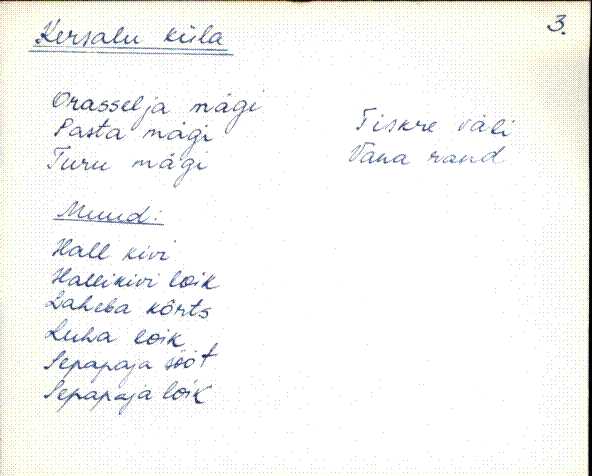 3.
Kersalu küla
Orasselja mägi
Pasta mägi
Turu mägi
Tiskre väli
Vana rand
Muud:
Hall kivi
Hallikivi loik
Laheba kõrts
Luha loik
Sepapaja sööt
Sepapaja loik